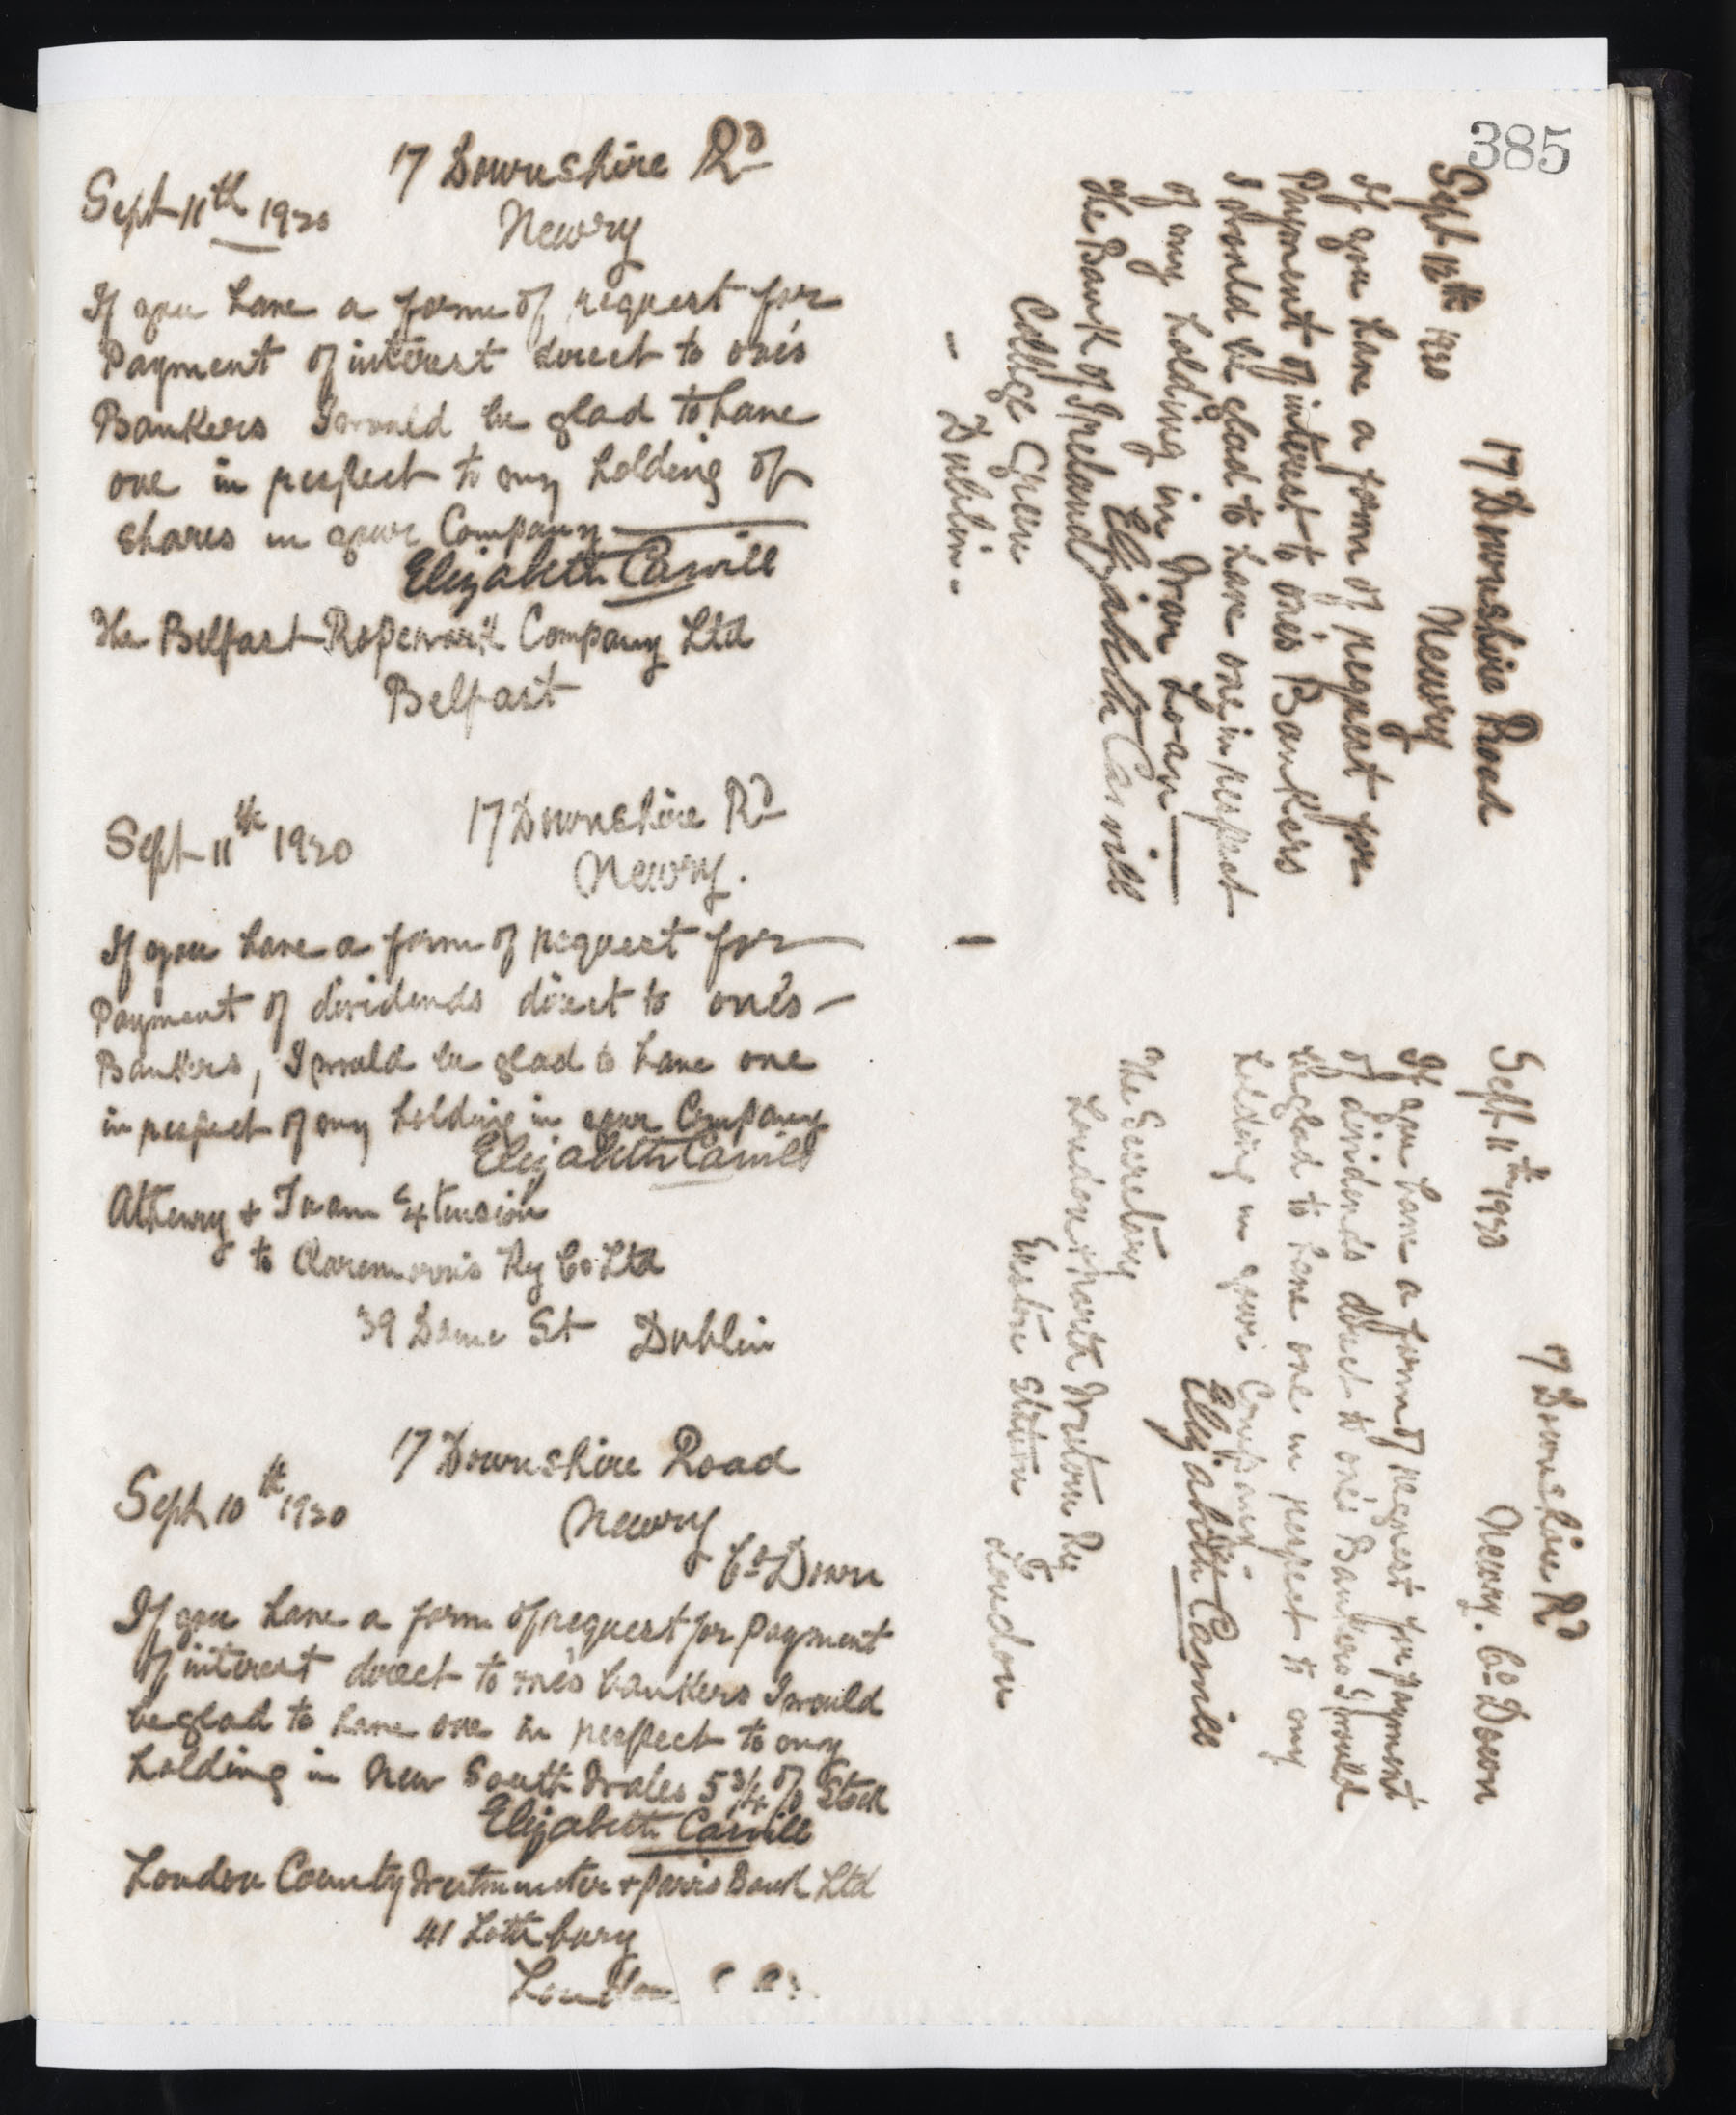 385
17 Downshire Rd
Sept 11th 1920
Newry
If you have a form of request for
Payment of interest direct to one's
Bankers I would be glad to have
one in respect to my holding of
shares in your Company
Elizabeth Carvill
The Belfast Ropework Company Ltd
Belfast
17 Downshire Rd
Sept 11th 1920
Newry.
If you have a form of request for
Payment of dividends direct to one's
Bankers, I would be glad to have one
in respect of my holding in your Company
Elizabeth Carvill
Athenry & Tuam Extension
to Claremorris Ry Co Ltd
39 Dame St Dublin
17 Downshire Road
Sept 10th 1920
Newry
Co Down
If you have a form of request for Payment
of interest direct to one's bankers I would
be glad to have one in respect to my
holding in New South Wales 5 3/4 % Stock
Elizabeth Carvill
London County Westminster & Parr's Bank Ltd
41 Lothbury
London
17 Downshire Road
Newry
Sept 12th 1920
If you have a form of request for
Payment of interest to one's Bankers
I would be glad to have one in respect
of my holding in War Loan
Elizabeth Carvill
The Bank of Ireland
College Green
- Dublin -
17 Downshire Rd
Newry. Co Down
Sept 11th 1920
If you have a form of request for payment
of dividends direct to one's Bankers I would
be glad to have one in respect to my
holding in your Company.
Elizabeth Carvill
The Secretary
London & North Western Ry
Euston Station London